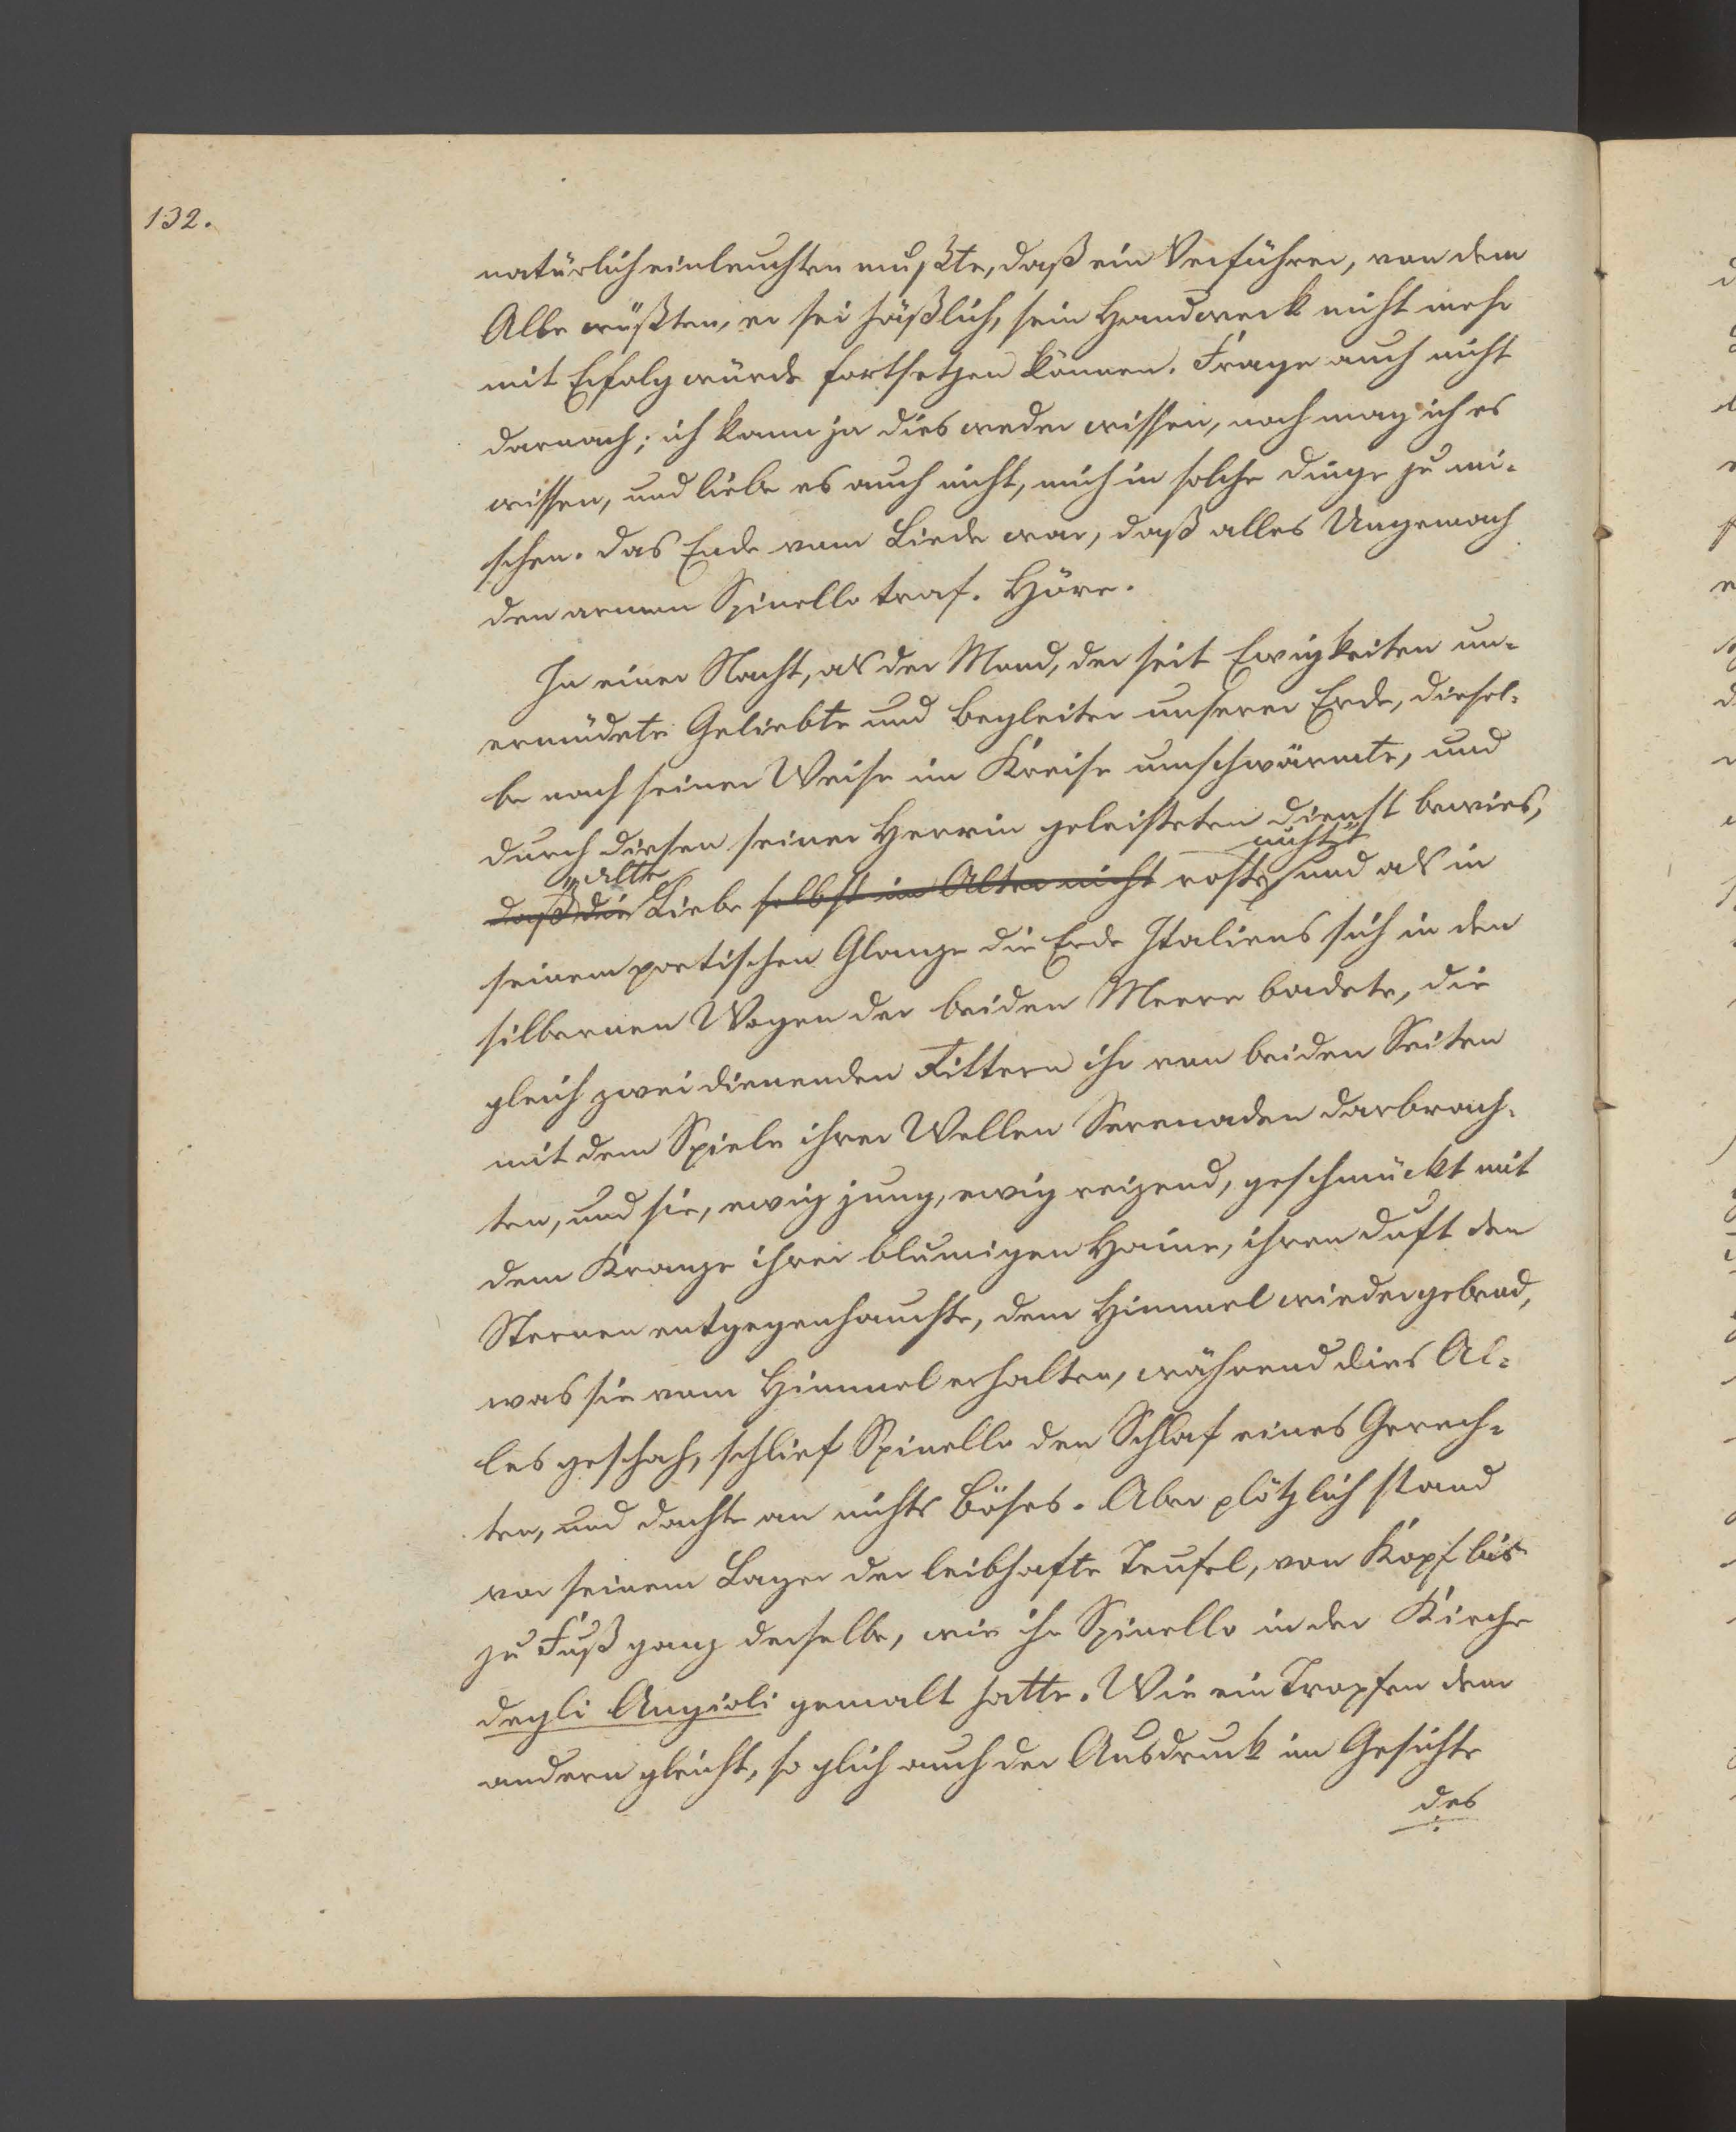 132.
natürlich einleuchten mußte, daß ein Verführer, von dem
Alle wüßten, er sei häßlich, sein Handwerk nicht mehr
mit Erfolg würde fortsetzen können. Frage auch nicht
darnach; ich kann ja dies weder wissen, noch mag ich es
wissen, und liebe es auch nicht, mich in solche Dinge zu mi-
schen. Das Ende vom Liede war, daß alles Ungemach
den armen Spinello traf. Höre.
In einer Nacht, als der Mond, der seit Ewigkeiten un-
ermüdete Geliebte und Begleiter unserer Erde, diesel-
be nach seiner Weise im Kreise umschwärmte, und
durch diesen seiner Herrin geleisteten Dienst bewies,
„alte nicht“
daß die Liebe selbst im Alter nicht roste, und als in
seinem poetischen Glanze die Erde Italiens sich in den
silbernen Wogen der beiden Meere badete, die
gleich zwei dienenden Rittern ihr von beiden Seiten
mit dem Spiele ihrer Wellen Serenaden darbrach-
ten, und sie, ewig jung, ewig reizend, geschmückt mit
dem Kranze ihrer blumigen Haine, ihren Duft den
Sternen entgegenhauchte, dem Himmel wiedergebend,
was sie vom Himmel erhalten, während dies Al-
les geschah, schlief Spinello den Schlaf eines Gerech-
ten, und dachte an nichts Böses. Aber plötzlich stand
vor seinem Lager der leibhafte Teufel, von Kopf bis
zu Fuß ganz derselbe, wie ihn Spinello in der Kirche
degli Angioli gemalt hatte. Wie ein Tropfen dem
andern gleicht, so glich auch der Ausdruck im Gesichte
des